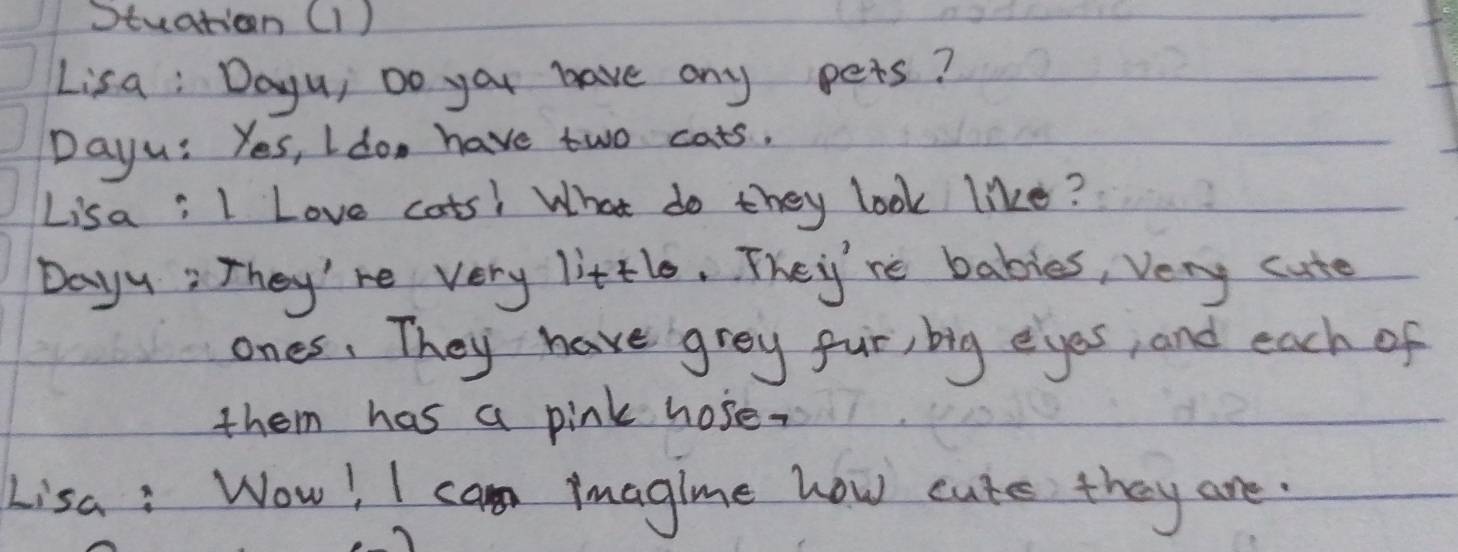 Stuation (1)
Lisa : Dayu, Do you have any pets?
Dayu: Yes, I do. have two cats.
Lisa : I Love cats! What do they look like?
Dayu : They're very little. They're babies, Very cute
ones. They have grey fur, big eyes, and each of
them has a pink nose.
Lisa : Wow! I can imagime how cute they are.